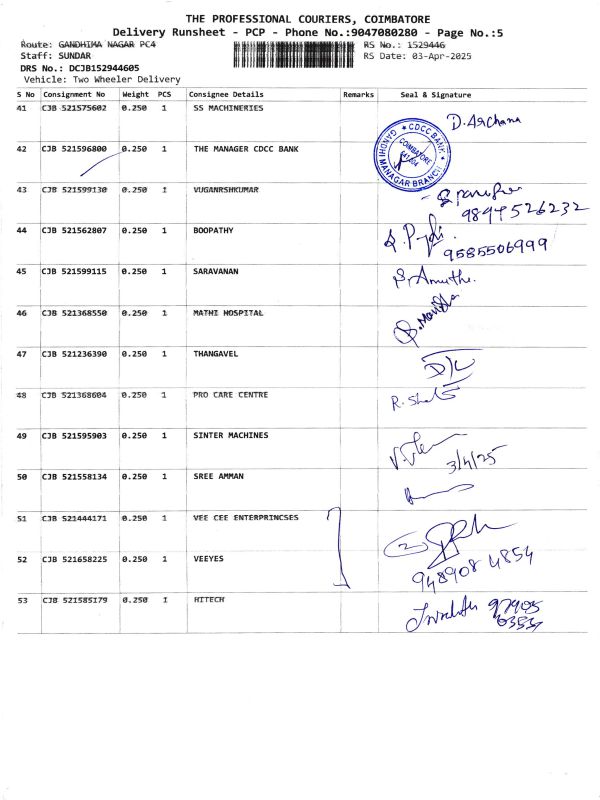 THE PROFESSIONAL COURIERS, COIMBATORE
Delivery Runsheet - PCP - Phone No.:9047080280 - Page No.:5
Route: GANDHIMA NAGAR PC4 RS No.: 1529446
Staff: SUNDAR RS Date: 03-Apr-2025
DRS No.: DCJB152944605
Vehicle: Two Wheeler Delivery
S No Consignment No Weight PCS Consignee Details Remarks Seal & Signature
41 CJB 521575602 0.250 1 SS MACHINERIES D. Archana
42 CJB 521596800 0.250 1 THE MANAGER CDCC BANK
CDCC BANK
COIMBATORE
641004
GANDHI MANAGAR BRANCH
43 CJB 521599130 0.250 1 VUGANRSHKUMAR
9894526232
44 CJB 521562807 0.250 1 BOOPATHY
9585506999
45 CJB 521599115 0.250 1 SARAVANAN S. Amutha.
46 CJB 521368550 0.250 1 MATHI HOSPITAL
47 CJB 521236390 0.250 1 THANGAVEL D/C
48 CJB 521368604 0.250 1 PRO CARE CENTRE
49 CJB 521595903 0.250 1 SINTER MACHINES
3/4/25
50 CJB 521558134 0.250 1 SREE AMMAN
51 CJB 521444171 0.250 1 VEE CEE ENTERPRINCSES
2
52 CJB 521658225 0.250 1 VEEYES 948908 4854
53 CJB 521585179 0.250 1 HITECH 97905